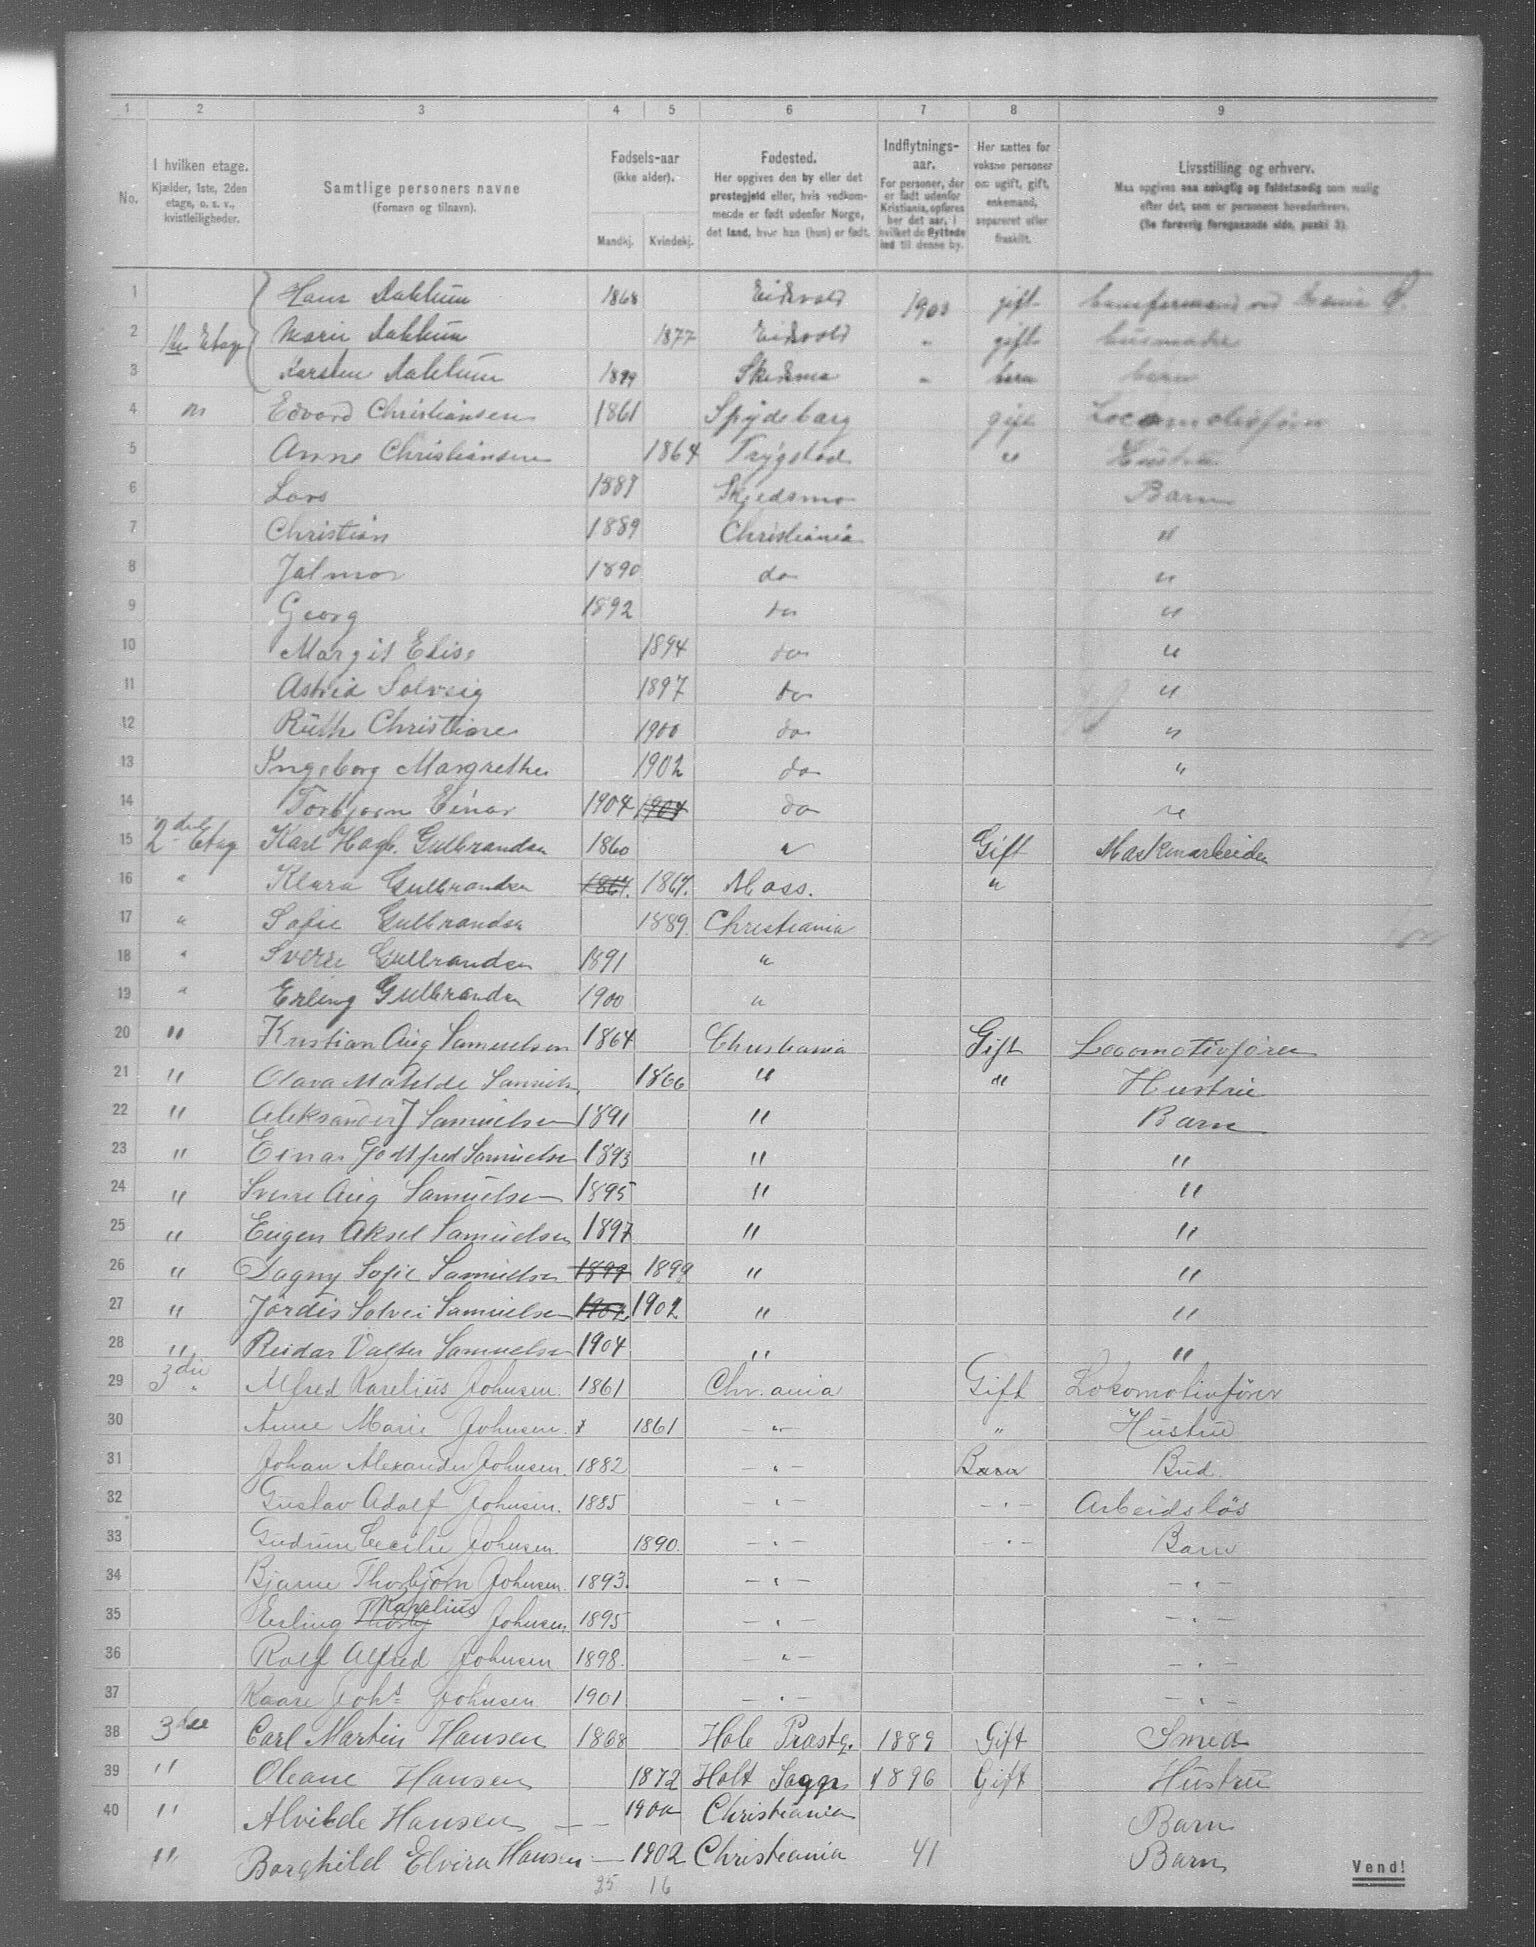 1 2 3 4 5 6 7 8 9
No.
I hvilken etage.
Kjælder, 1ste, 2den
etage, o. s. v.,
kvistleiligheder.
Samtlige personers navne
(Fornavn og tilnavn).
Fødsels-aar
(ikke alder).
Mandkj. Kvindekj.
Fødested.
Her opgives den by eller det
prestegjeld eller, hvis vedkom-
mende er født udenfor Norge,
det land, hvor han (hun) er født.
Indflytnings-
aar.
For personer, der
er født udenfor
Kristiania, opføres
her det aar, i
hvilket de flyttede
ind til denne by.
Her sættes for
voksne personer
om ugift, gift,
enkemand,
separeret eller
fraskilt.
Livsstilling og erhverv.
Maa opgives saa nøiagtig og fuldstændig som mulig
efter det, som er personens hovederhverv.
(Se forøvrig foregaaende side, punkt 3).
1 Hans Dahlum 1868 Eidsvold 1903 gift
2 1ste Etage Marie Dahlum 1877 Eidsvold " gift husmoder
3 Karsten Dahlum 1899 Skedsmo " barn barn
4 Edvard Christiansen 1861 Spydeberg gift Locomotivfører
5 Anne Christiansen 1864 Trygstad " Hustru
6 Lars 1887 Skjedsmo Barn
7 Christian 1889 Christiania "
8 Jalmar 1890 do "
9 Georg 1892 do "
10 Margit Elise 1894 do "
11 Astrid Solveig 1897 do "
12 Ruth Christiane 1900 do "
13 Ingeborg Margrethe 1902 do "
14 Torbjørn Einar 1904 1904 do "
15 2den Etag Karl Hagb. Gulbrandsen 1860 " Gift Maskinarbeider
16 " Klara Gulbrandsen 1867. 1867. Moss. "
17 " Sofie Gulbrandsen 1889. Christiania
18 " Sverre Gulbrandsen 1891 "
19 " Erling Gulbrandsen 1900 "
20 " Kristian Aug Samuelsen 1864 Christiania Gift Locomotivfører
21 " Olava Matilde Samuels. 1866 " " Hustru
22 " Aleksander J Samuelsen 1891 " Barn
23 " Einar Godtfred Samuelsen 1893 " "
24 " Sverre Aug Samuelsen 1895 " "
25 " Eugen Aksel Samuelsen 1897 " "
26 " Dagny Sofie Samuelsen 1899 1899 " "
27 " Jordis Solvei Samuelsen 1902 1902 " "
28 " Reidar Valter Samuelsen 1904 " "
29 3die " Alfred Karelius Johnsen. 1861 Chr.ania Gift Lokomotivfører
30 Anne Marie Johnsen. 1861 - " - " Hustru
31 Johan Alexander Johnsen. 1882 - " - Barn Bud.
32 Gustav Adolf Johnsen. 1885 - " - - " - Arbeidsløs
33 Gudrun Cecilie Johnsen. 1890. - " - - " - Barn
34 Bjarne Thorbjørn Johnsen. 1893. - " - - " -
35 Erling Karelius Johnsen. 1895 - " - - " -
36 Rolf Alfred Johnsen 1898. - " - - " -
37 Kaare Johs Johnsen 1901 - " - - " -
38 3die Carl Martin Hansen 1868 Hole Prostg. 1889 Gift Smed
39 " Oleane Hansen 1872 Holt Sogn 1896 Gift Hustru
40 " Alvilde Hansen — — 1900 Christiania Barn
" Borghild Elvira Hansen — 1902 Christiania 41 Barn
25 16
Vend!